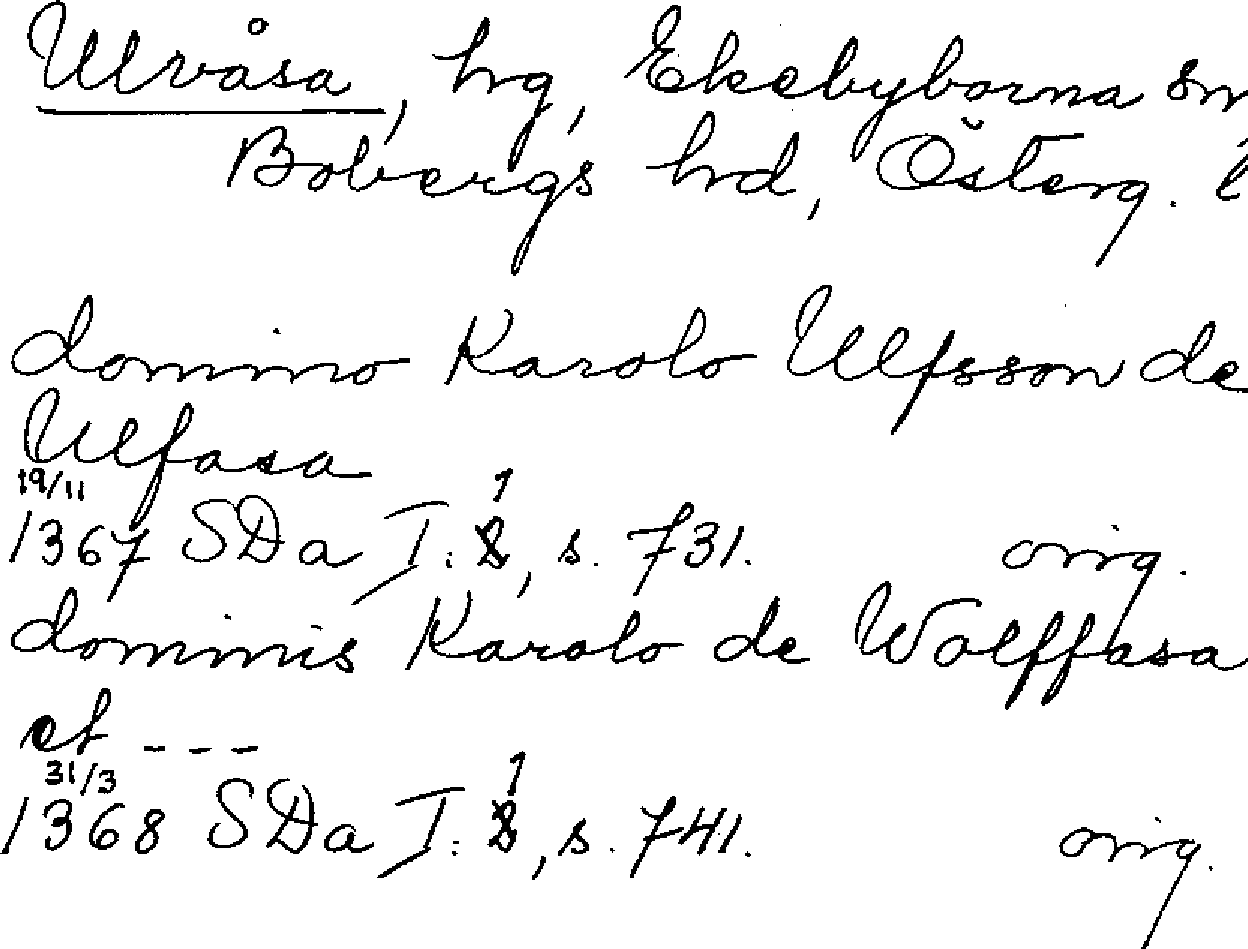 Ulvåsa, hrg, Ekebyborna sn
Bobergs hrd, Österg. l
domino Karolo Ulfsson de
Ulfasa
19/11
1367 SDa I: 1, s. 731. orig.
dominis Karolo de Wolffasa
et ---
31/3
1368 SDa I: 1, s. 741. orig.